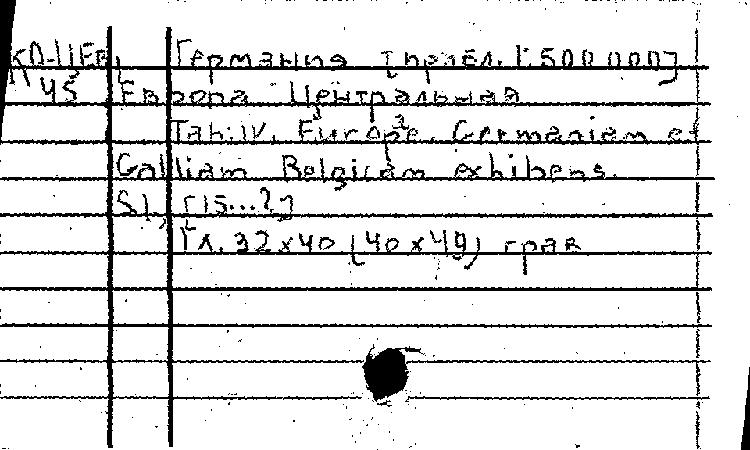 КО-ЦЕв, Германия [прибл. 1:500 000]
45 Европа Центральная
Tab. IV. Europe. Germaniam et
Galliam Belgicam exhibens.
S.l., [15...?]
1 л. 32x40 (40x49) грав